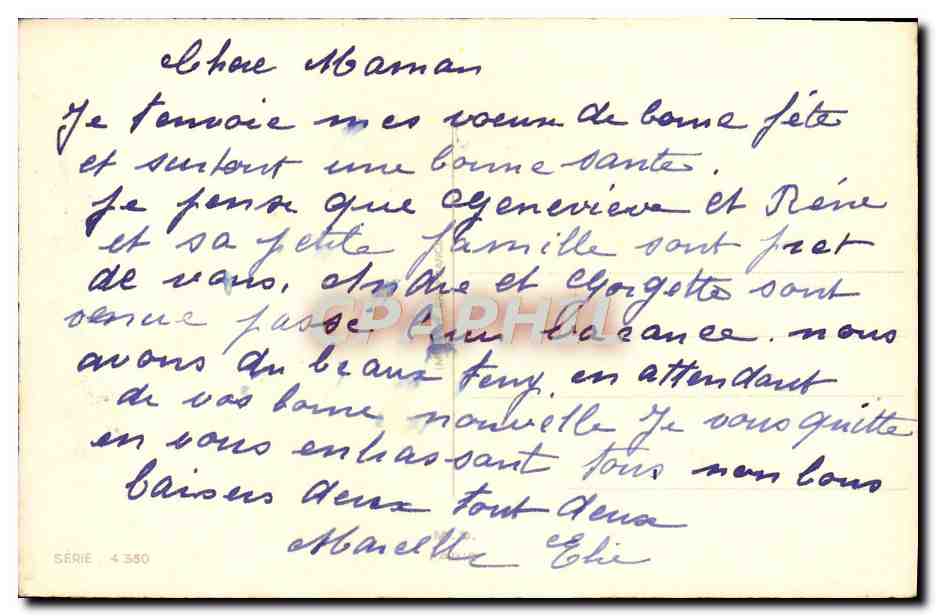 Chere Maman
Je t'envoie mes voeux de bonne fête
et surtout une bonne santé.
Je pense que Geneviève et Réné
et sa petite famille sont pret
de vous. Andre et Gorgette sont
venue passe leur vacance. nous
avons du beaux temp. en attendant
de vos bonne nouvelle Je vous quitte
en vous enbrassant tous non bons
baisers deux tout deux
Marcelle Elie
SÉRIE 4 350
CPAPHIL